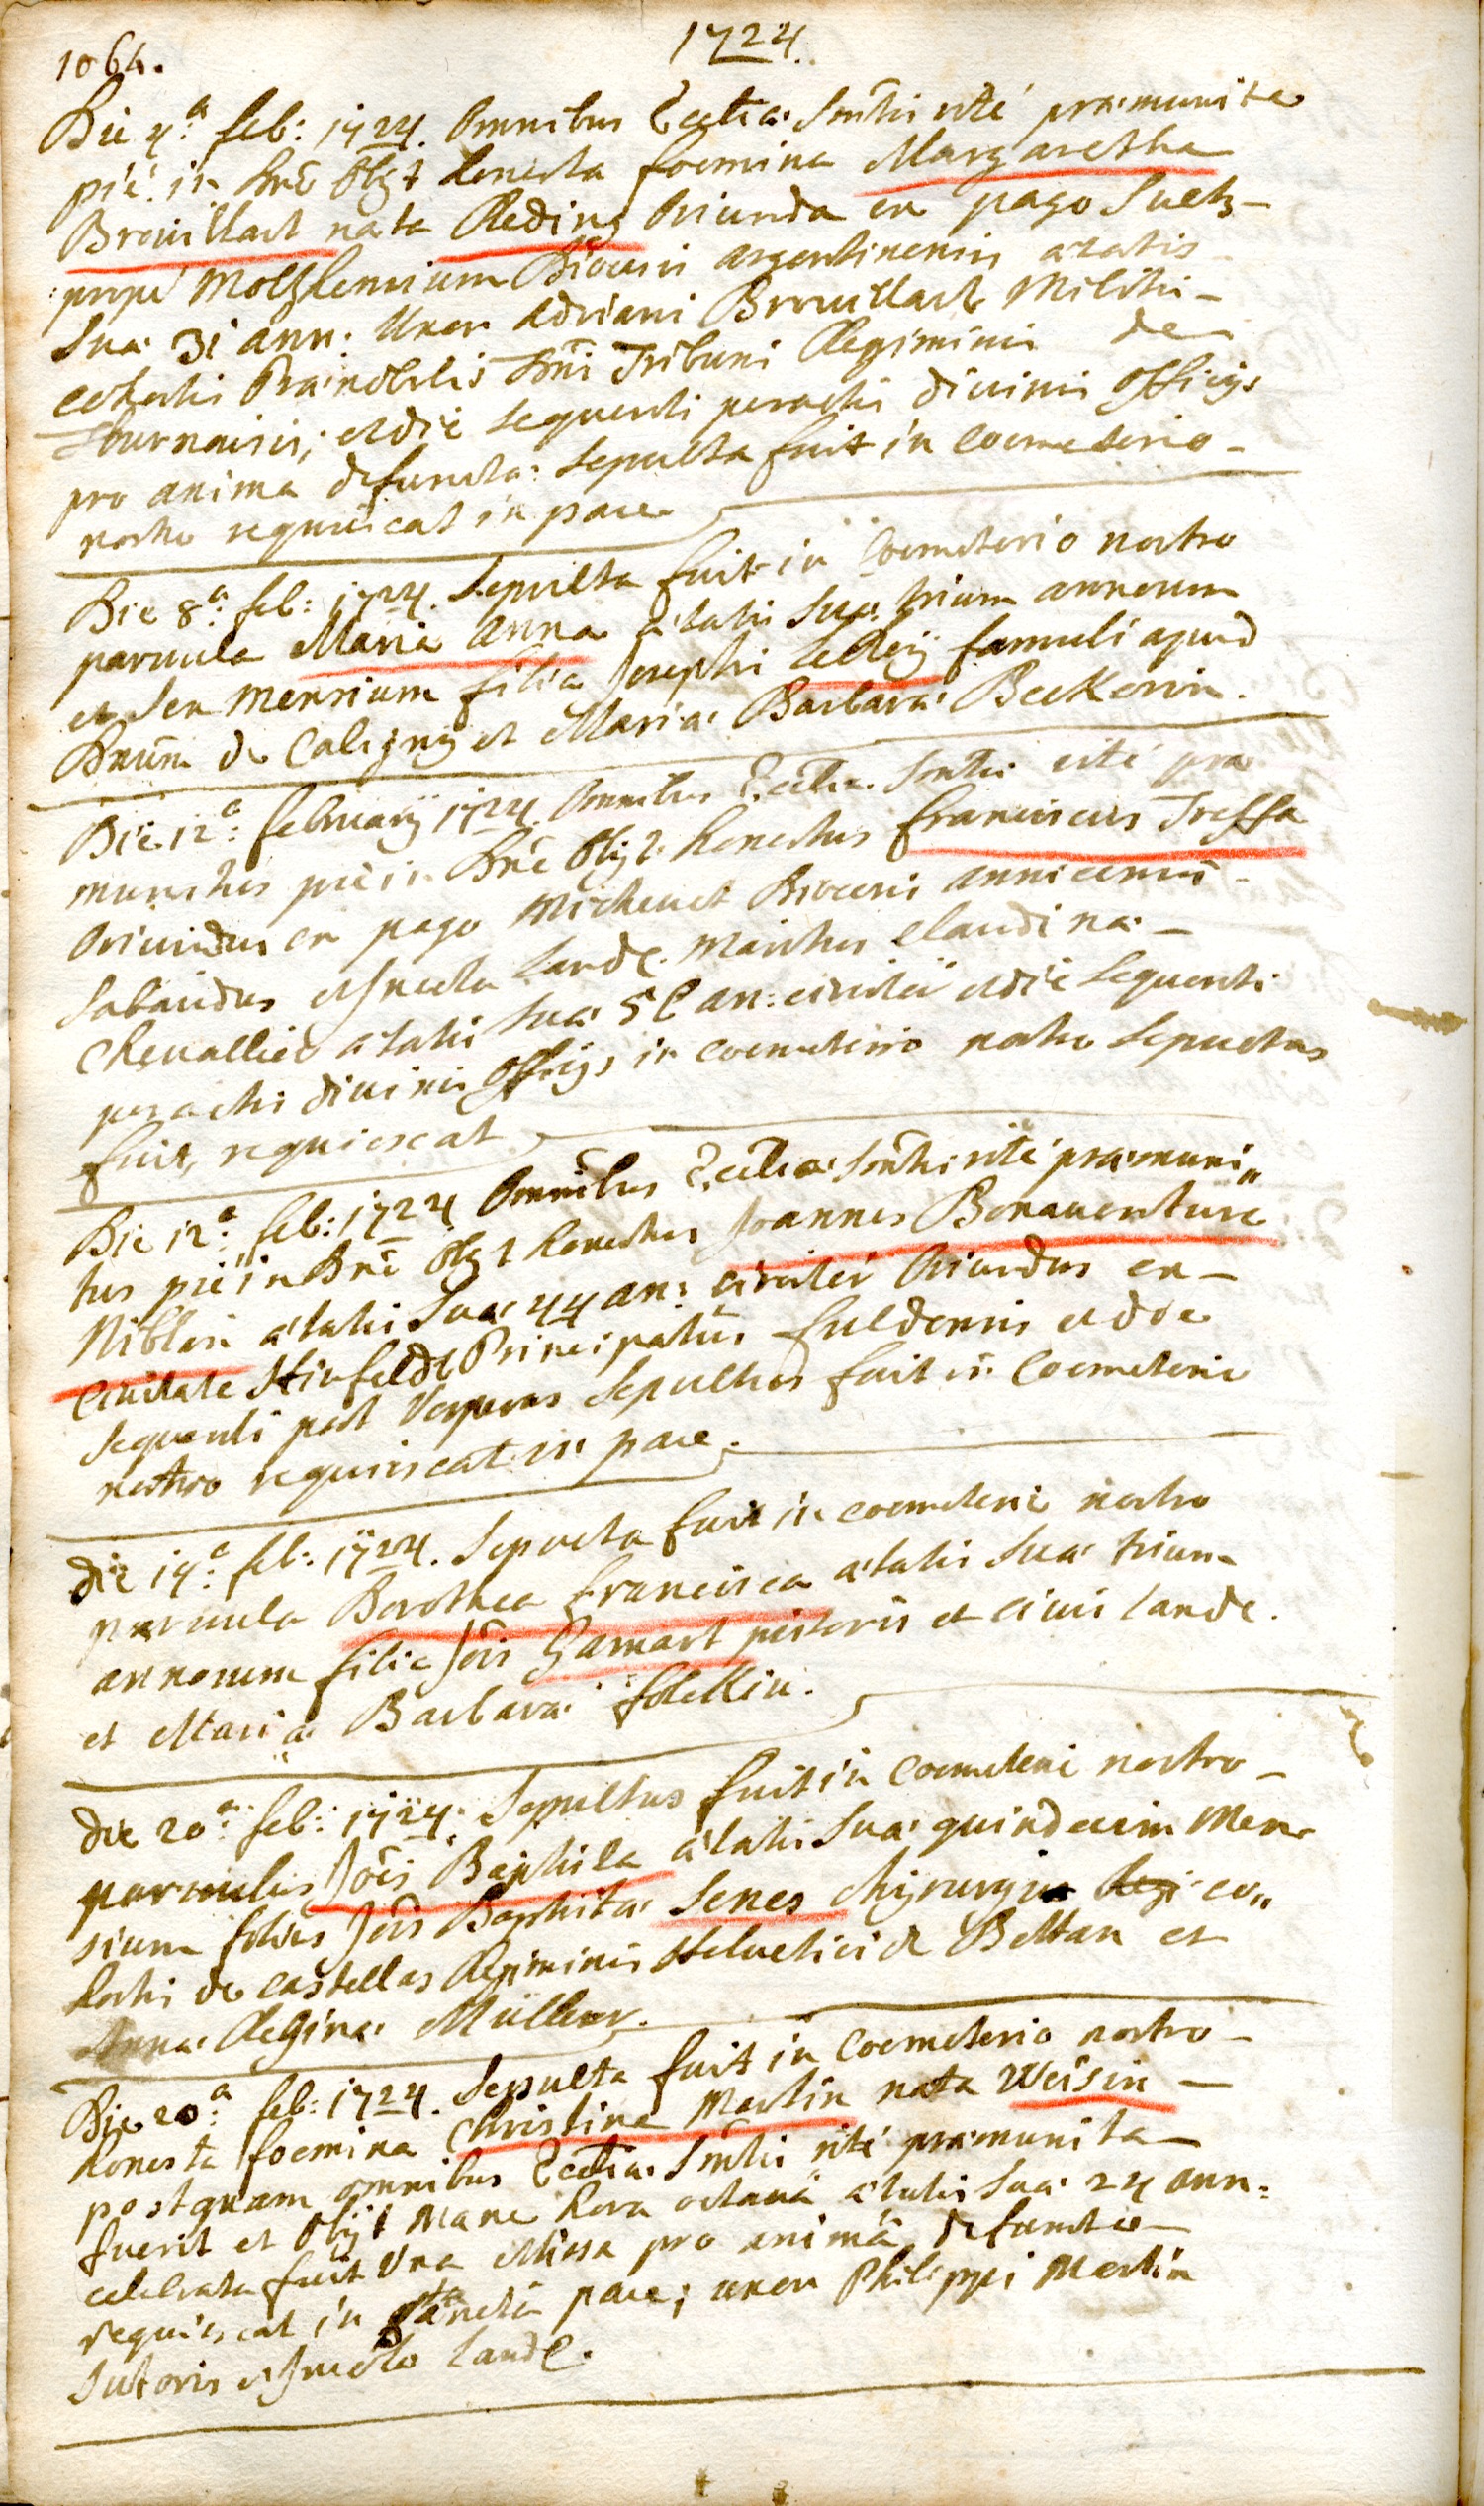 1064.
1724.
Die 4.a feb: 1724. Omnibus Eccliæ Smtis rité præmunita
pié in Dnõ Obijt honesta foemina Margaretha
Brouillart nata Reding Oriunda ex pago Sultz-
propé Molzhemium Dioecesis argentinensis ætatis
Suæ 31 ann: Uxor Adriani Brouillart Militis-
cohortis Prænobilis Dni Tribuni Regiminis de
Tournaisis; et die sequenti peractis divinis Officijs
pro anima defunctæ: sepulta fuit in Coemeterio-
nostro requiescat in pace
Die 8.a feb: 1724. Sepulta fuit in Coemeterio nostro
parvula Maria Anna ætatis Suæ trium annorum
et sex mensium filia Josephi famuli apud
Dnum de Caligny et Mariæ Barbaræ Beckerin.
Die 12.a februarij 1724. Omnibus Eccliæ Smtis rité præ
munitus pié in Dnõ Obijt honestus franciscus Treffa
Oriundus ex pago Dioecesis anniciensis-
Sabaudus et Incola Landæ. Maritus Claudinæ-
Chevallier ætatis Suæ an: circiter et die sequenti
peractis divinis Officijs in coemeterio nostro sepultus
fuit, requiescat
Die 12.a feb: 1724 Omnibus Eccliæ Smtis rité præmuni"
tus pié in Dnõ Obijt honestus Joannes Bonaventura
Nibler ætatis Suæ 44 an: circiter Oriundus ex-
civitate Hinfeldt Principatûs fuldensis et die
sequenti post Vesperas sepultus fuit in Coemeterio
nostro requiescat in pace.
die 14.a feb: 1724. Sepulta fuit in coemeterio nostro
parvula Dorothea francisca ætatis Suæ trium
annorum filia Jois Gamart pistoris et civis Landæ.
et Mariæ Barbaræ
die 20.a feb: 1724. Sepultus fuit in Coemeterio nostro-
parvulus Jões Baptista ætatis Suæ quindecim Men-
sium filius Jois Baptistæ Senes Chyrurgi co"
hortis de castellas Regiminis Helvetici de et
Annæ Reginæ Müllerin.
Die 20.a feb: 1724. Sepulta fuit in Coemeterio nostro-
honesta foemina Christina Martin nata Weisin-
postquam omnibus Eccliæ Smtis rité præmunita-
fuerit et Obijt Mane hora octavâ ætatis Suæ 24 ann:
celebrata fuit Una Missa pro animâ defunctæ-
requiescat in sanctâ pace; uxor Philippi Martin
Sutoris et Incolæ Landæ.